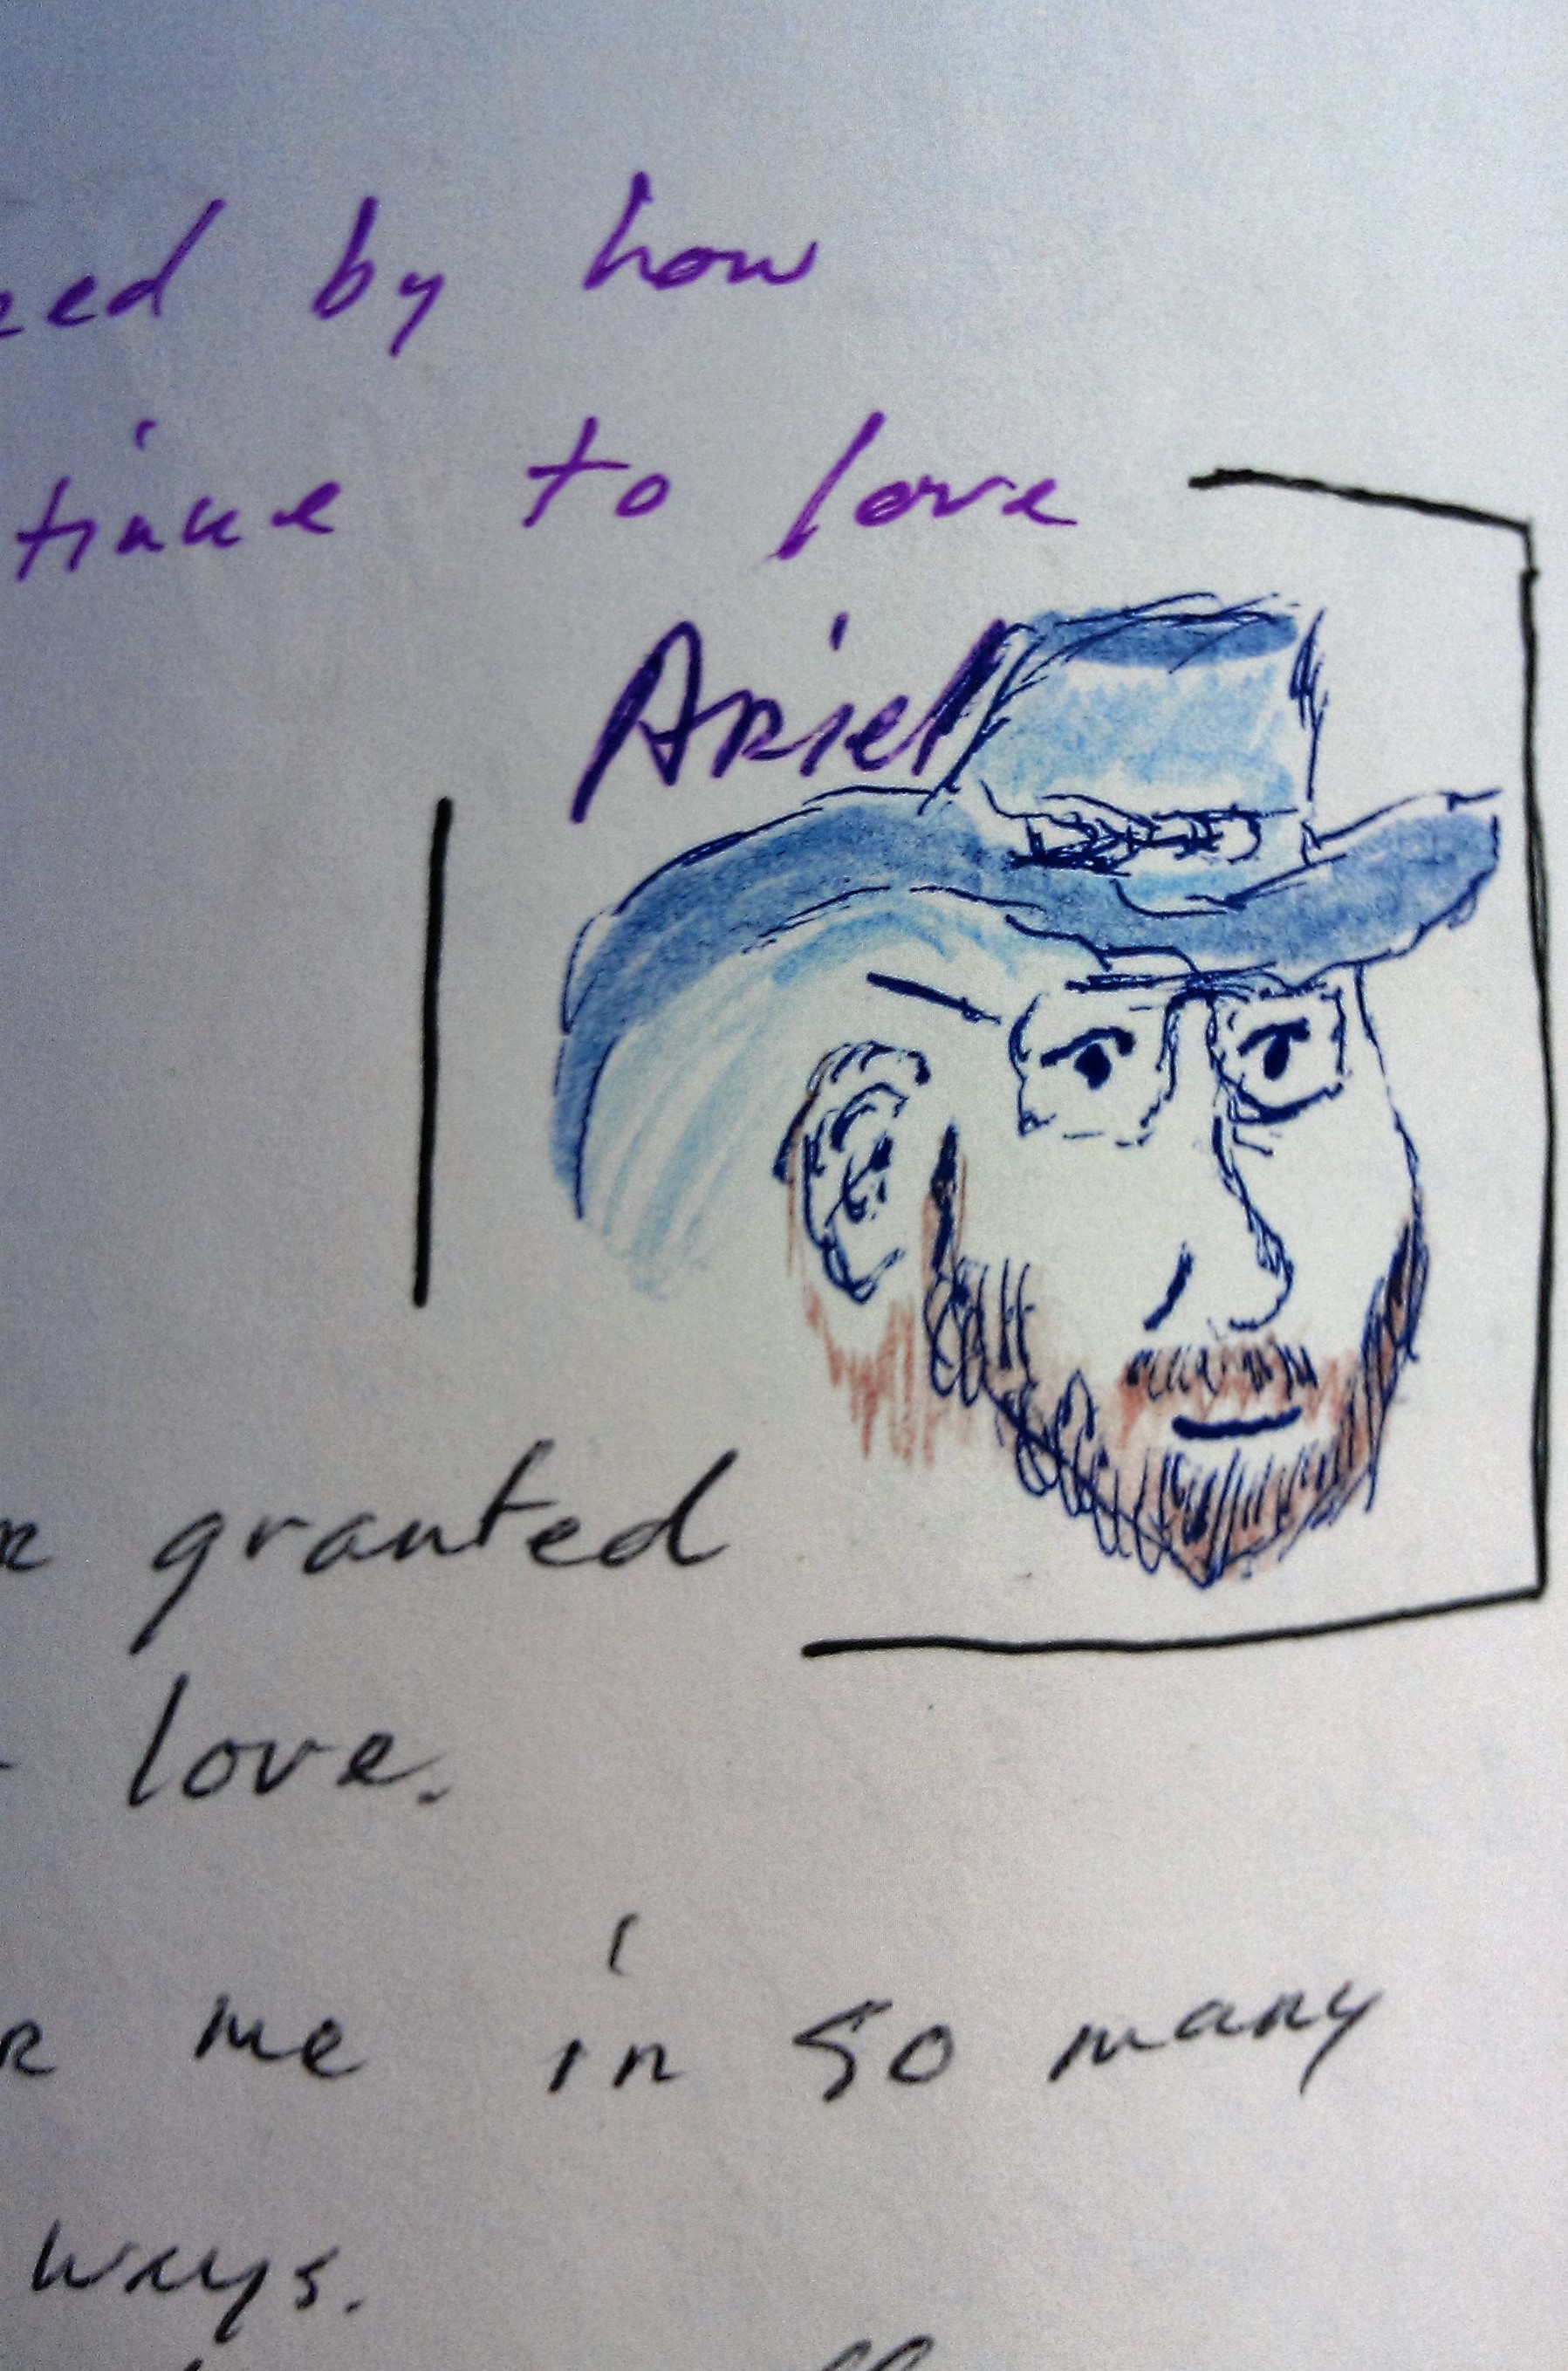 zed by how
tinue to love
Ariel
r granted
love.
r me in so many
ways.